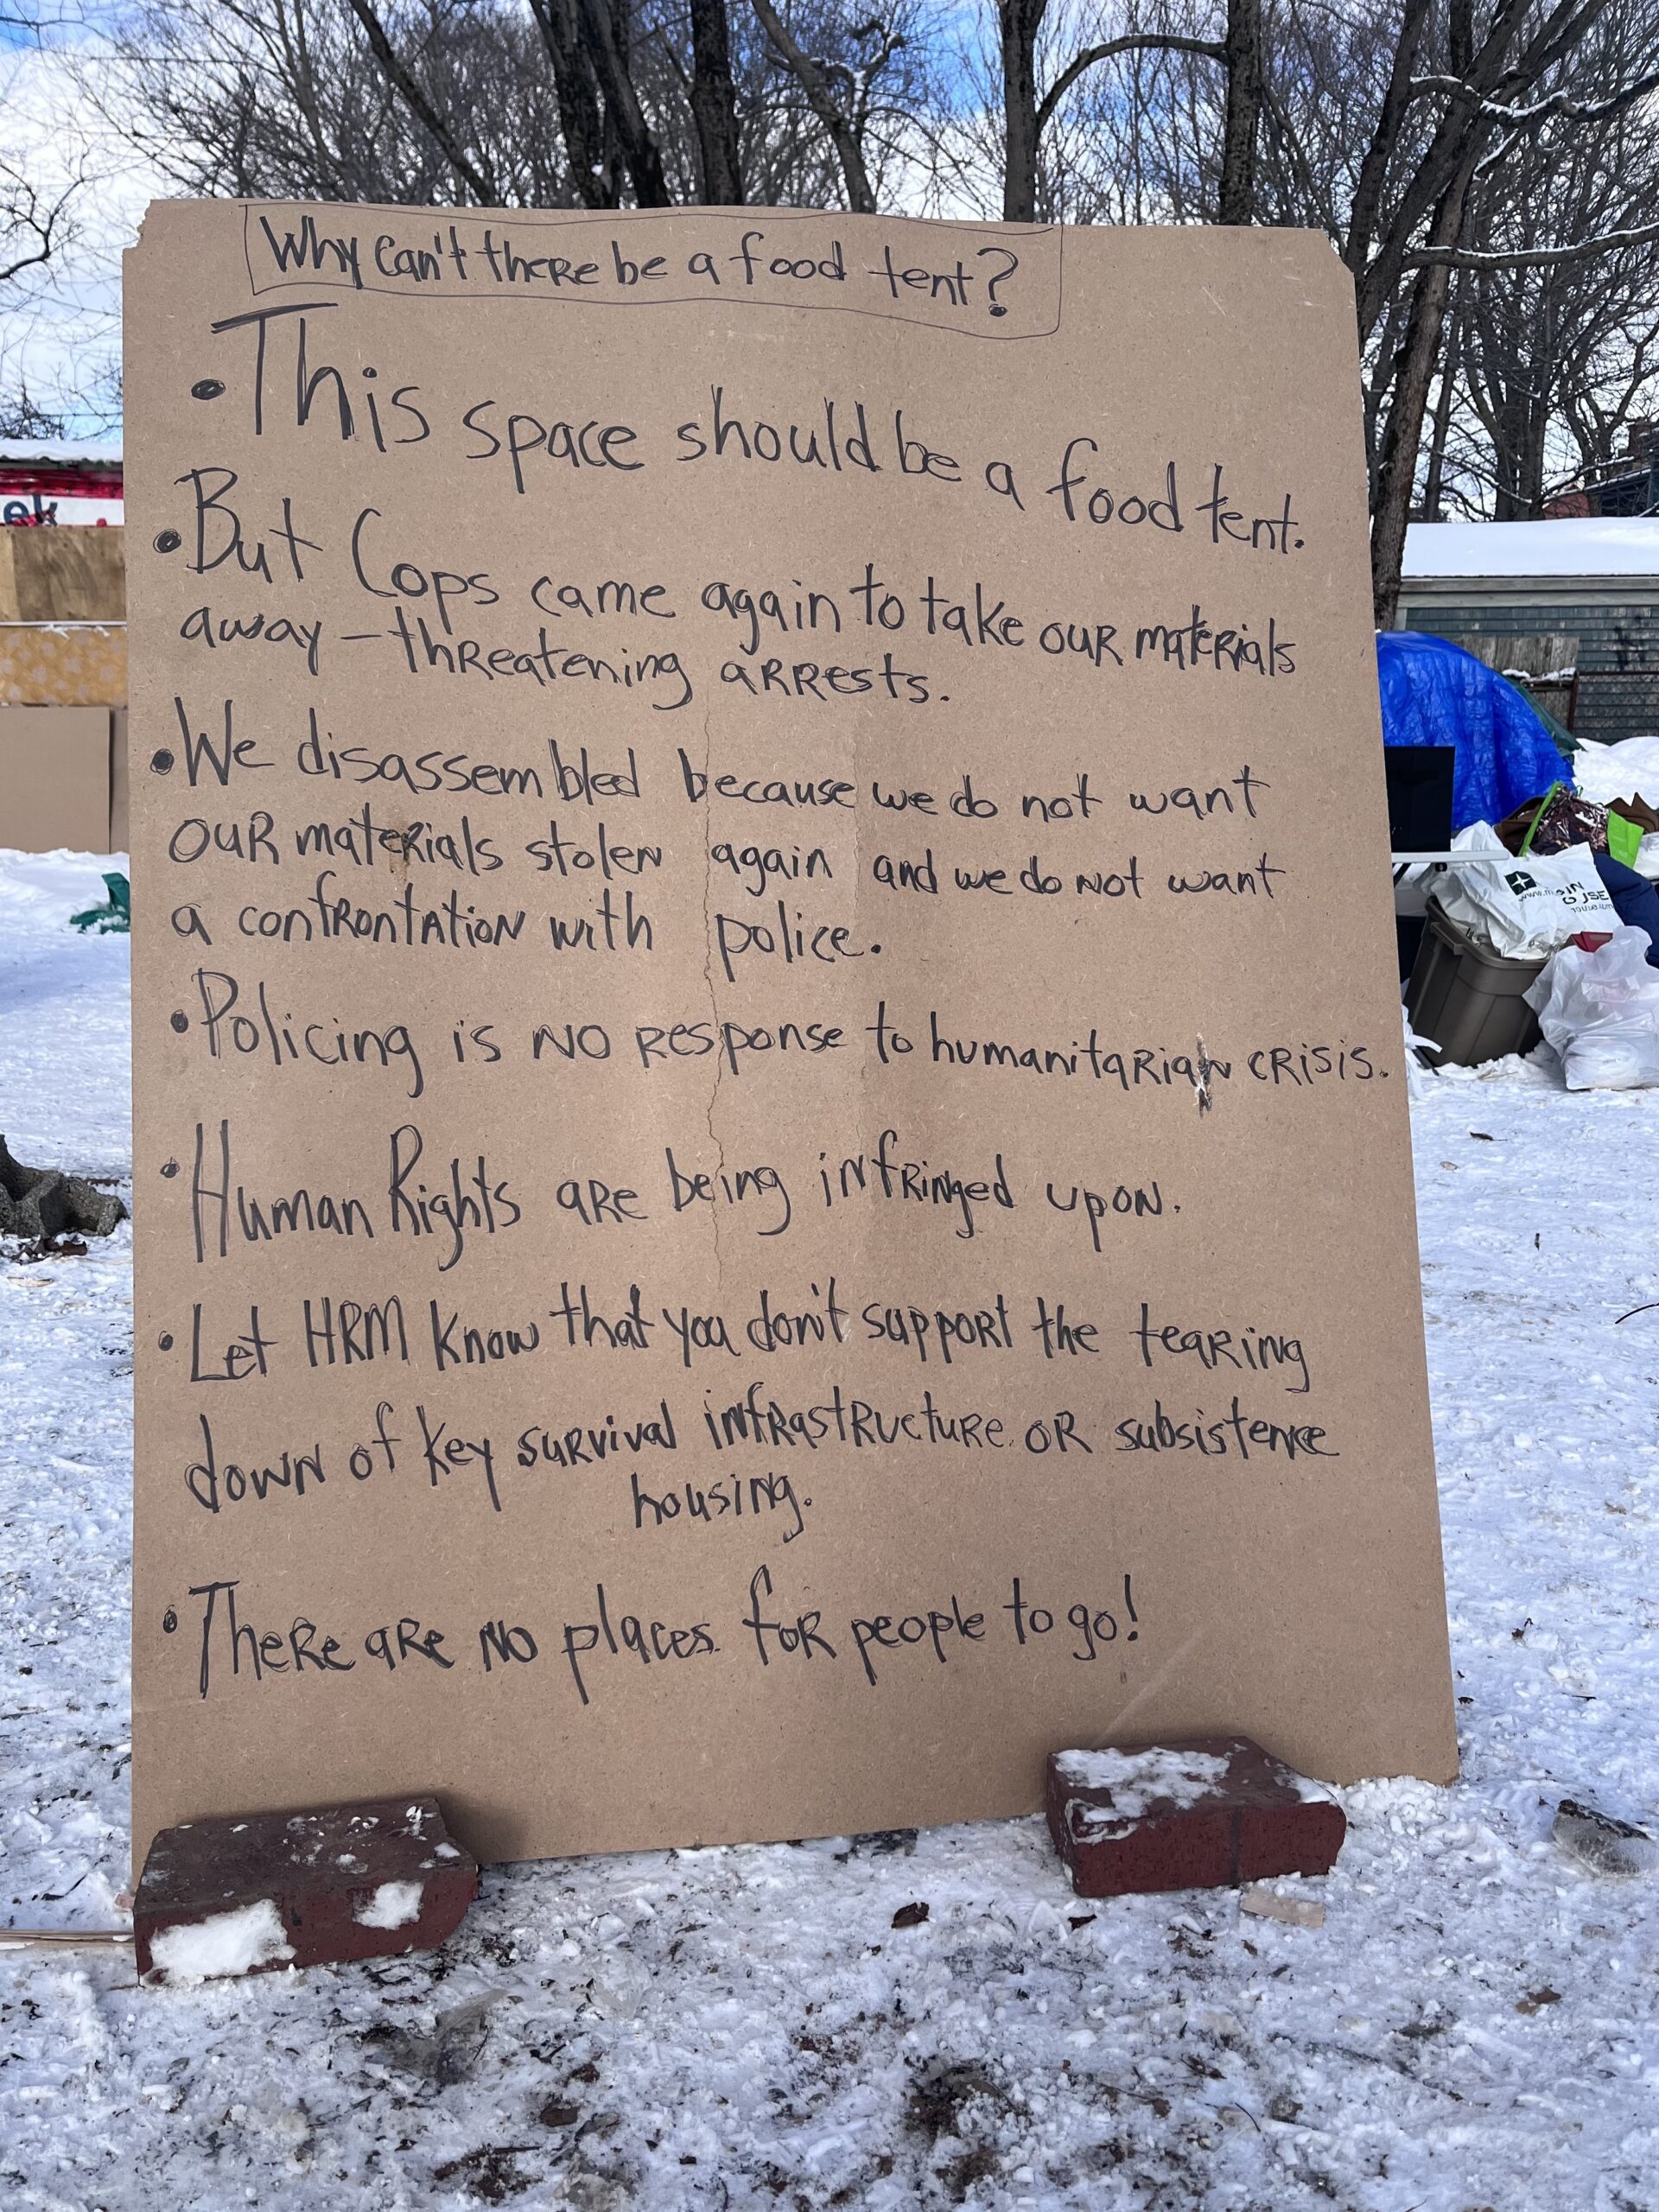 Why can't there be a food tent?
• This space should be a food tent.
• But Cops came again to take our materials
away - threatening arrests.
• We disassembled because we do not want
our materials stolen again and we do not want
a confrontation with police.
• Policing is no response to humanitarian crisis.
• Human Rights are being infringed upon.
• Let HRM know that you don't support the tearing
down of key survival infrastructure or subsistence
housing.
• There are no places for people to go!
ek